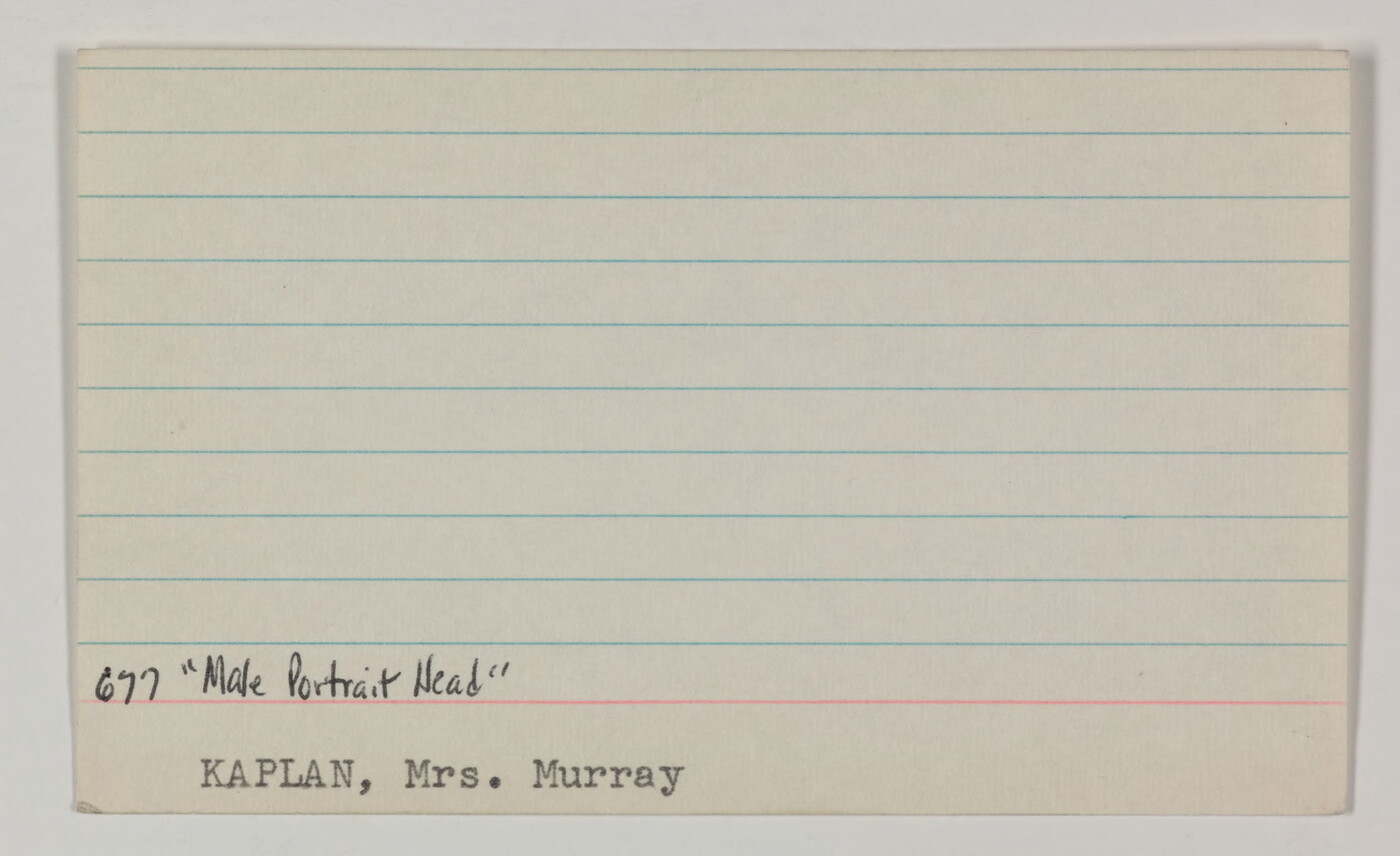 677 "Male Portrait Head"
KAPLAN, Mrs. Murray